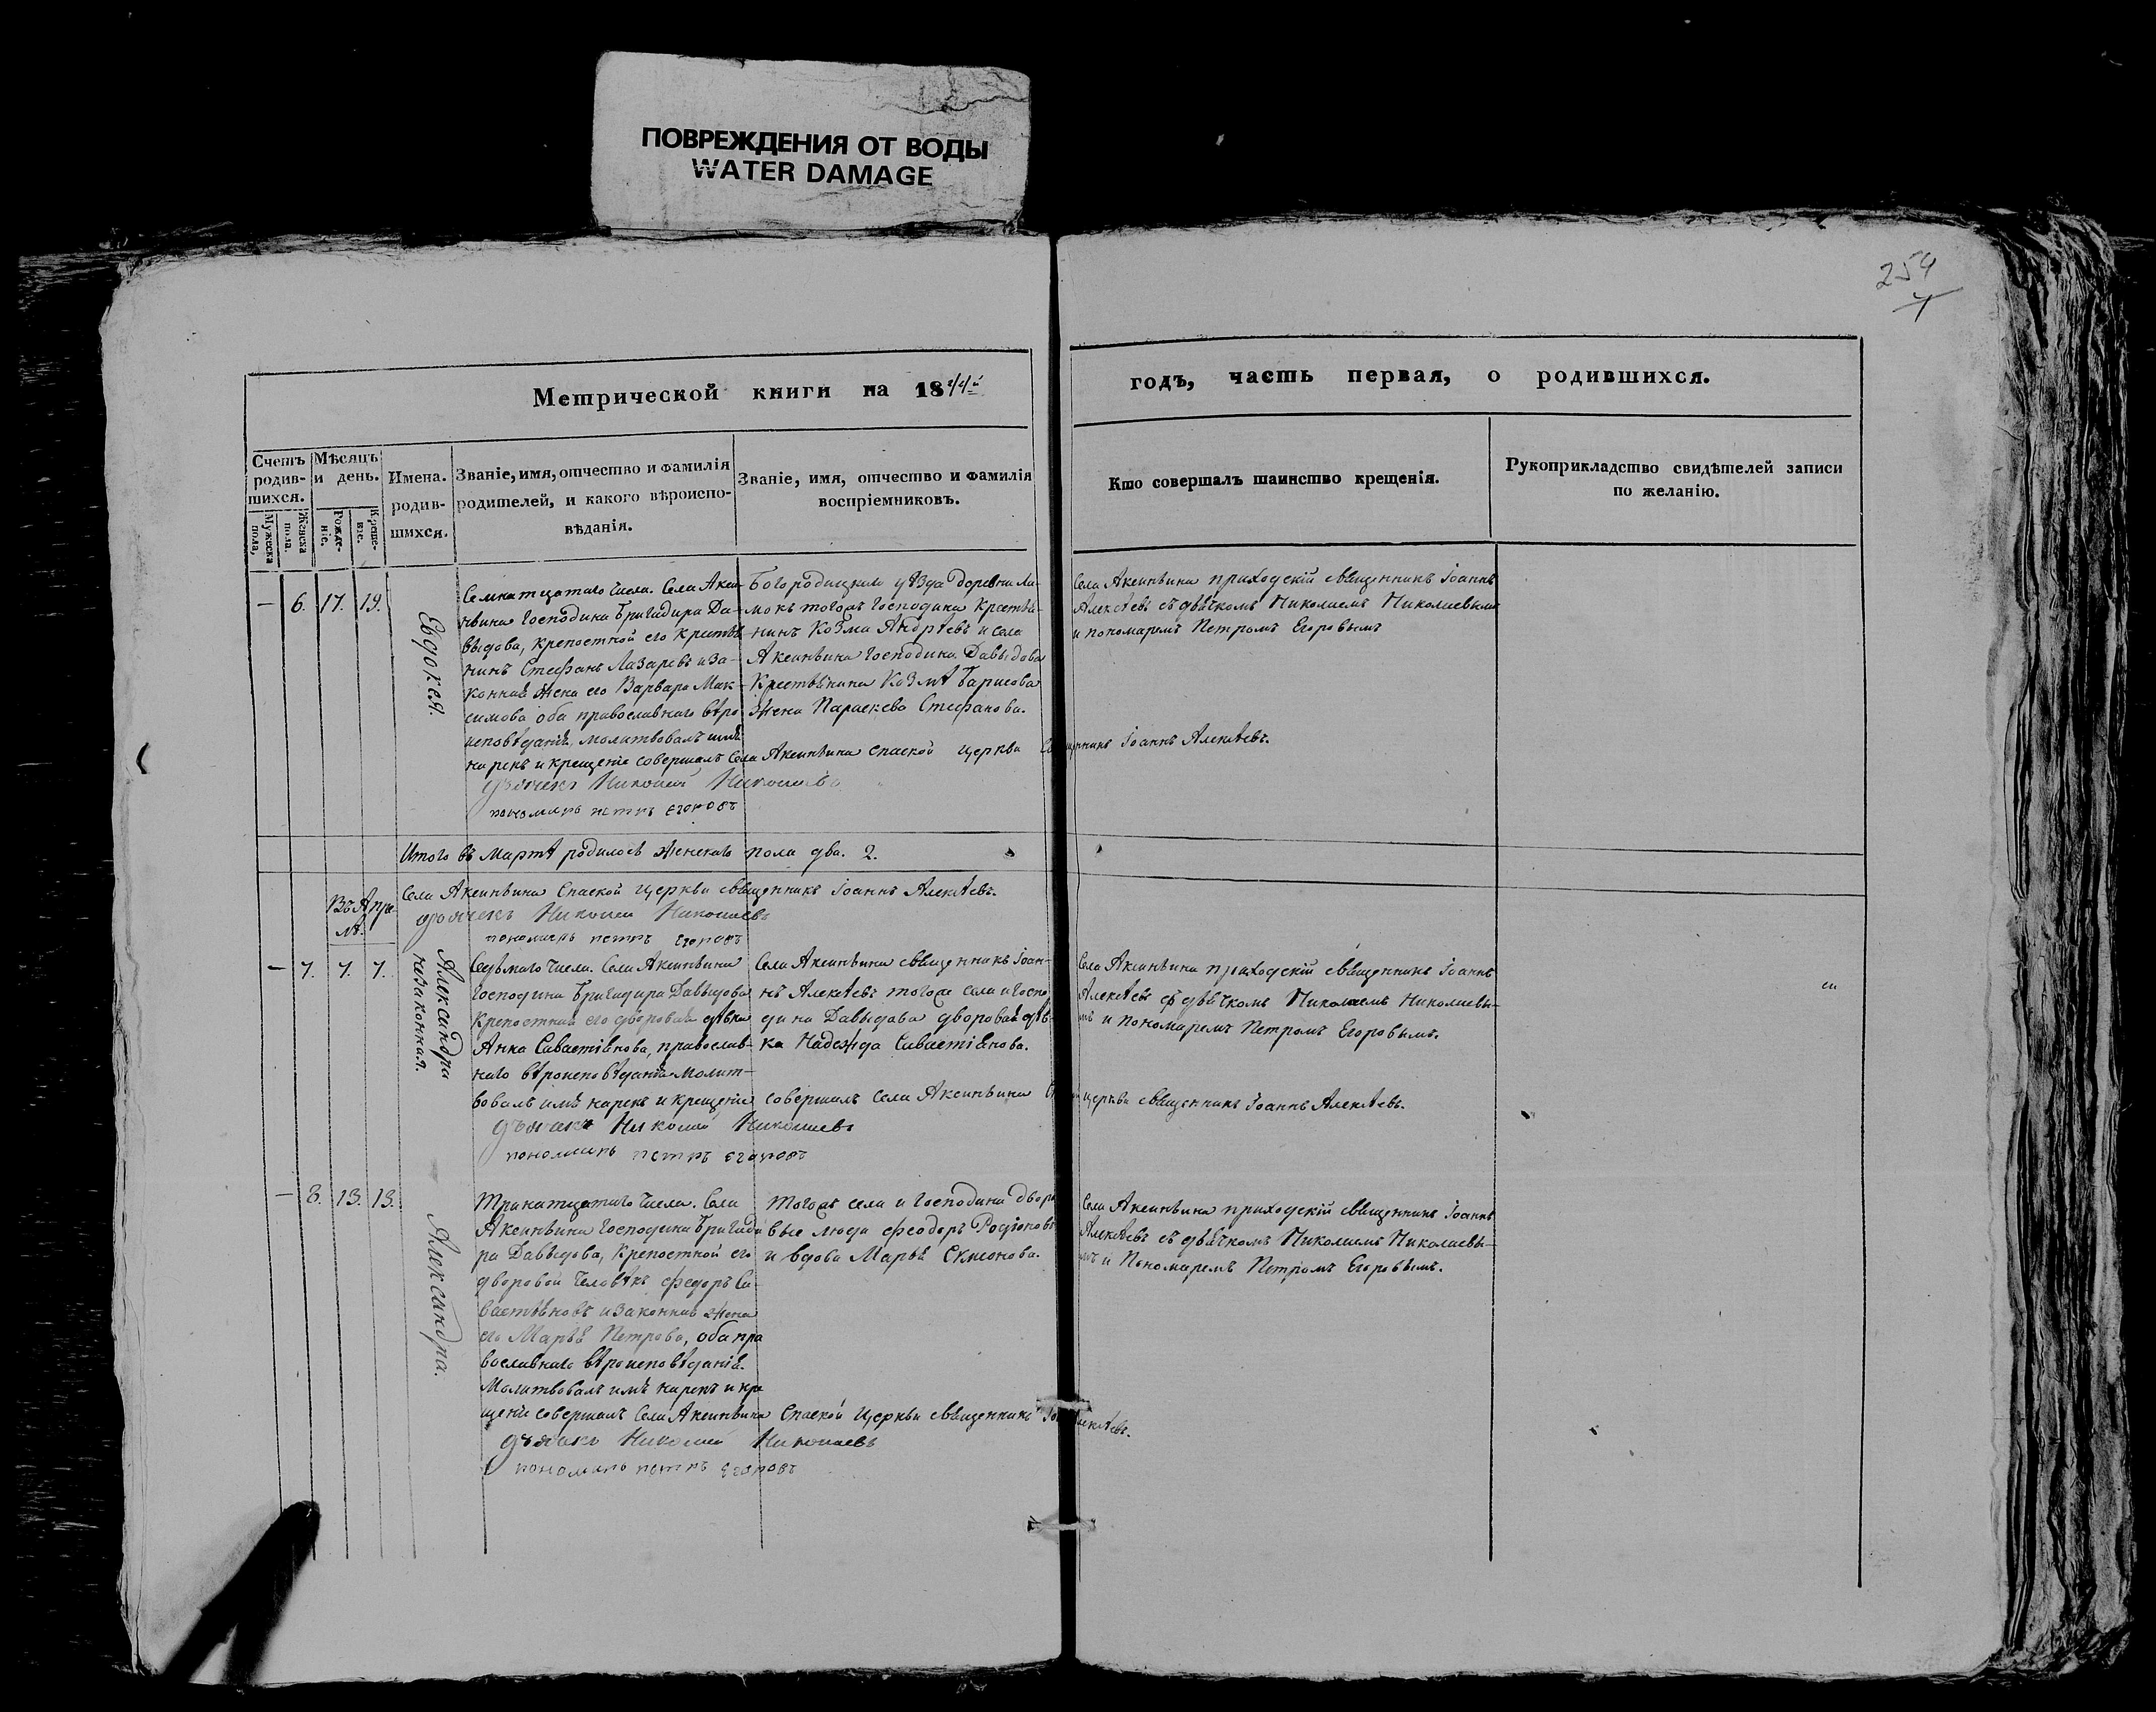 ПОВРЕЖДЕНИЯ ОТ ВОДЫ
WATER DAMAGE
254
Метрической книги на 1844й
годъ, часть первая, о родившихся.
Счетъ родившихся.
Мужеска пола,
Женска пола.
Мѣсяцъ и день.
Рожденіе.
Крещеніе.
Имена родившихся.
Званіе, имя, отчество и фамилія
родителей, и какого вѣроиспо-
вѣданія.
Званіе, имя, отчество и фамилія
воспріемниковъ.
Кто совершалъ таинство крещенія.
Рукоприкладство свидѣтелей записи
по желанію.
— 6. 17. 19.
Евдокея.
Семнатцатаго числа. Села Аксин-
ьвина Господина Бригадира Да-
выдова, крепостной его крестья-
нинъ Стефанъ Лазаревъ и за-
конная жена его Варвара Мак-
симова оба православнаго вѣро
исповѣданія, молитвовалъ имя
нарекъ и крещеніе совершалъ Села Аксиньина Спаской церкви священникъ Іоаннъ Алексѣевъ.
дьячекъ Николай Николаевъ
пономарь петръ егоровъ
Богородицкаго уѣзда деревни
тогожъ Господина Крестья-
нинъ Козма Андрѣевъ и села
Аксиньина Господина Давыдова
Крестьянина Козмы Барисова
жена Параскева Стефанова.
Села Аксиньина приходскій священникъ Іоаннъ
Алексѣевъ съ дьячкомъ Николаемъ Николаевымъ
и пономаремъ Петромъ Егоровымъ
Итого въ мартѣ родилось женскаго пола два. 2.
Села Аксиньина Спаской церкви священникъ Іоаннъ Алексѣевъ.
дьячекъ Николай Николаевъ
пономарь петръ егоровъ
Въ Апре-
лѣ.
— 7. 7. 7.
Александра
незаконная.
Седьмаго числа. Села Аксиньина
Господина Бригадира Давыдова
Крепостная его дворовая дѣвка
Анна Савастіянова, православ-
наго вѣроисповѣданія молит-
вовалъ имя нарекъ и крещеніе совершалъ Села Аксиньина церкви священникъ Іоаннъ Алексѣевъ.
дьячекъ Николай Николаевъ
пономарь петръ егоровъ
Села Аксиньина священникъ Іоан-
нъ Алексѣевъ тогоже села и Госпо
дина Давыдова дворовая дѣв-
ка Надежда Савастіянова.
Села Аксиньина приходскій священникъ Іоаннъ
Алексѣевъ съ дьячкомъ Николаемъ Николаевы-
мъ и пономаремъ Петромъ Егоровымъ.
— 8. 13. 13.
Александра.
Тринатцатаго числа. Села
Аксиньина Господина Бригади
ра Давыдова, Крепостной его
дворовой человѣкъ Федоръ Са-
вастьяновъ и законная жена
его Марья Петрова, оба пра
вославнаго вѣроисповѣданія.
Молитвовалъ имя нарекъ и кре
щеніе совершалъ Села Аксиньина Спаской церкви священникъ Іоаннъ Алексѣевъ.
дьячекъ Николай Николаевъ
пономарь петръ егоровъ
Тогожъ села и Господина дворо
вые люди Феодоръ Родіоновъ
и вдова Марья Симонова.
Села Аксиньина приходскій священникъ Іоаннъ
Алексѣевъ съ дьячкомъ Николаемъ Николаевы-
мъ и Пономаремъ Петромъ Егоровымъ.